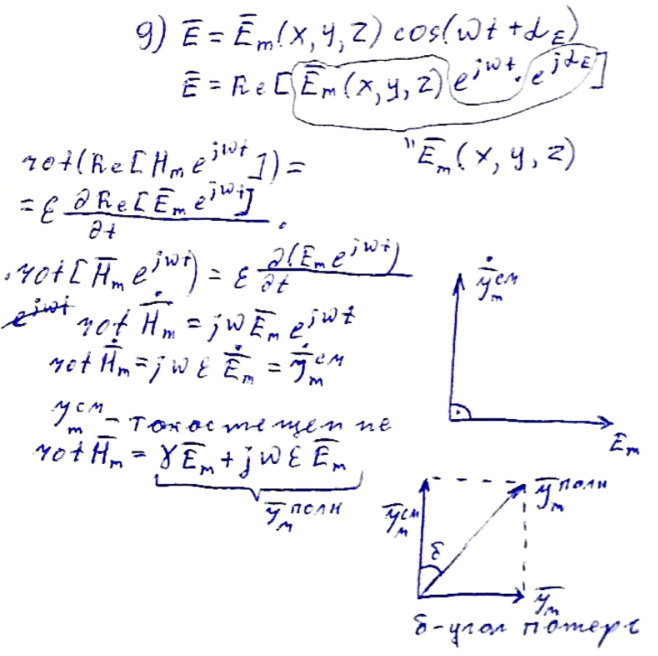 g) E̅ = E̅m(x, y, z) cos(ωt + αE)
E̅ = Re[E̅m(x, y, z) e^{jωt} · e^{jαE}]
"E̅m(x, y, z)
rot(Re[Hm e^{jωt}]) =
= ε ∂Re[E̅m e^{jωt}] / ∂t .
rot[H̅m e^{jωt}) = ε ∂(Em e^{jωt}) / ∂t
e^{jωt} rot Ḣm = jωE̅m e^{jωt}
rot Ḣm = jωε Ė̅m = J̇̅m^{см}
Jm^{см} – ток смещения
rot H̅m = γE̅m + jωεE̅m
J̅m^{полн}
J̇̅m^{см}
E̅m
J̅m^{см}
J̅m^{полн}
δ
J̅m
δ-угол потерь